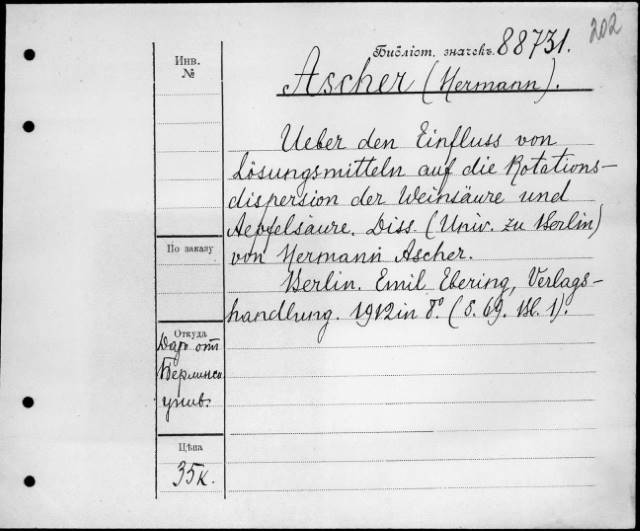 202
Библіот. значекъ. 88731.
Инв.
№
Ascher (Hermann).
Ueber den Einfluss von
Lösungsmitteln auf die Rotations-
dispersion der Weinsäure und
Aepfelsäure. Diss. (Univ. zu Berlin)
von Hermann Ascher.
Berlin. Emil Ebering, Verlags-
handlung. 1912 in 8° (S. 69. Bl. 1).
По заказу
Откуда
Даръ отъ
Берлинск.
унив.
Цѣна
35к.